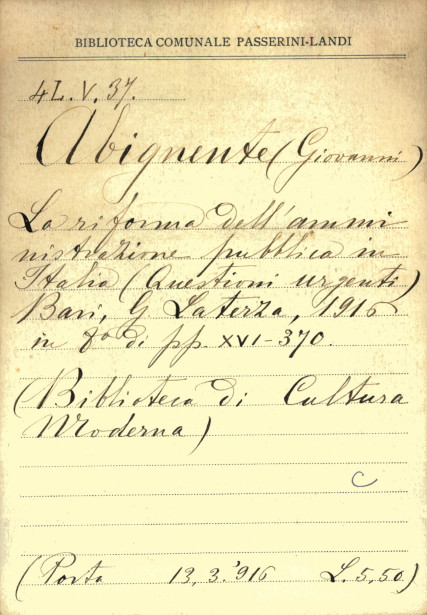 BIBLIOTECA COMUNALE PASSERINI-LANDI
4L.V.37.
Abignente (Giovanni)
La riforma dell'ammi
nistrazione pubblica in
Italia (Questioni urgenti)
Bari, G. Laterza, 1916
in 8º di pp. XVI-370.
(Biblioteca di Cultura
Moderna)
C
(Porta 13.3.'916 L. 5,50)